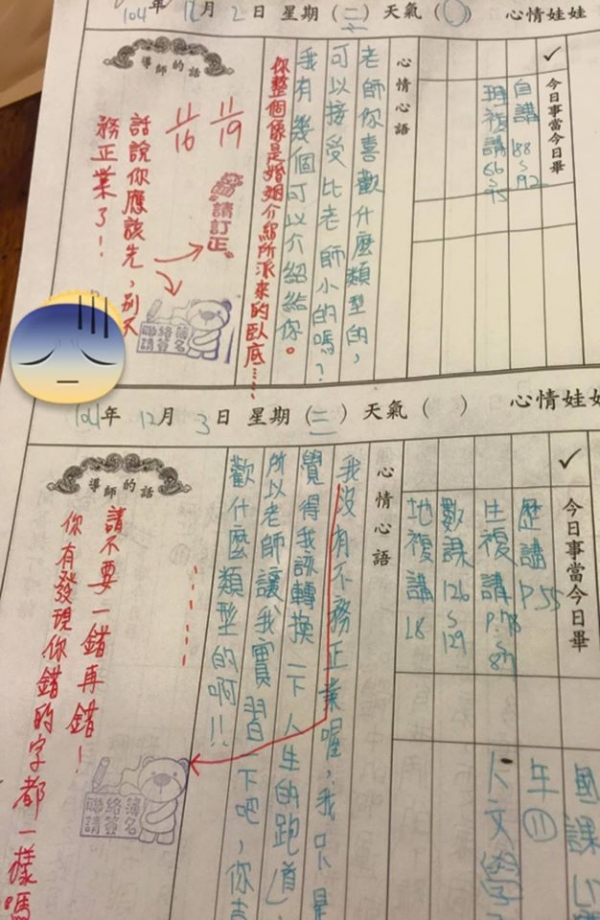 104年 12月 2日 星期（二）天氣（ ） 心情娃娃
✓ 今日事當今日畢
自講 88~92
複講
心情心語
老師你喜歡什麼類型的，
可以接受比老師小的嗎？
我有幾個可以介紹給你。
你整個像是婚姻介紹所派來的臥底……
導師的話
11/19
11/16
請訂正
話說你應該先，別不
務正業了！
聯絡簿
請簽名
104年 12月 3日 星期（三）天氣（ ） 心情娃娃
✓ 今日事當今日畢
歷講 P.55
生複講 P.78~87
數課 126~129
地複講 18
國課
年⑪
人文學
心情心語
我沒有不務正業喔，我只是
覺得我該轉換一下人生的跑道，
所以老師讓我實習一下吧，你喜
歡什麼類型的啊!!
……
導師的話
請不要一錯再錯！
你有發現你錯的字都一樣嗎
聯絡簿
請簽名